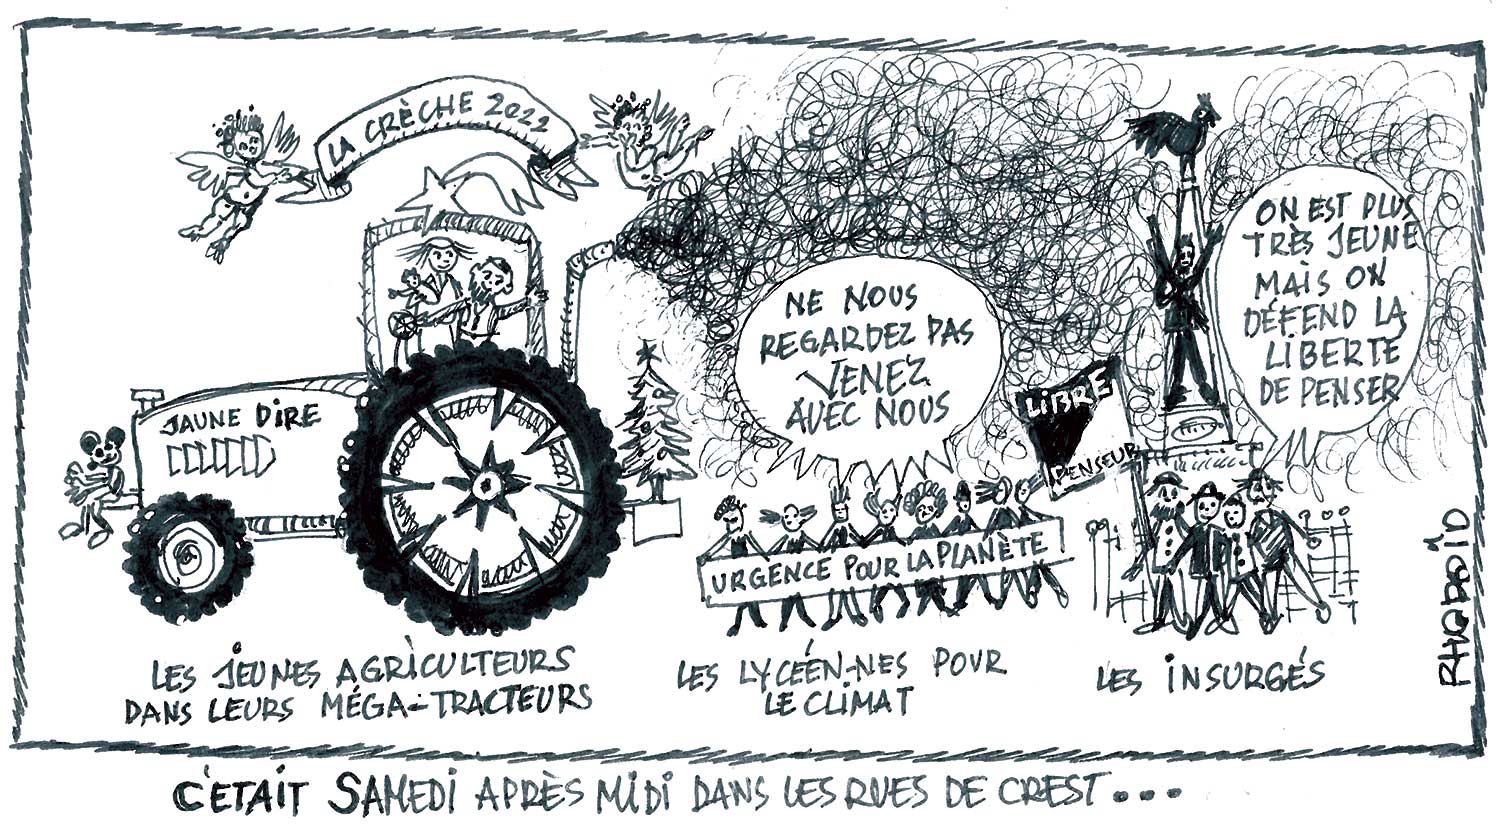 LA CRÈCHE 2022
JAUNE DIRE
NE NOUS
REGARDEZ PAS
VENEZ
AVEC NOUS
LIBRE
PENSEUR
ON EST PLUS
TRÈS JEUNE
MAIS ON
DÉFEND LA
LIBERTÉ
DE PENSER
URGENCE POUR LA PLANÈTE
LES JEUNES AGRICULTEURS
DANS LEURS MÉGA-TRACTEURS
LES LYCÉEN-NES POUR
LE CLIMAT
LES INSURGÉS
RHODOÏD
C'ETAIT SAMEDI APRÈS MIDI DANS LES RUES DE CREST...